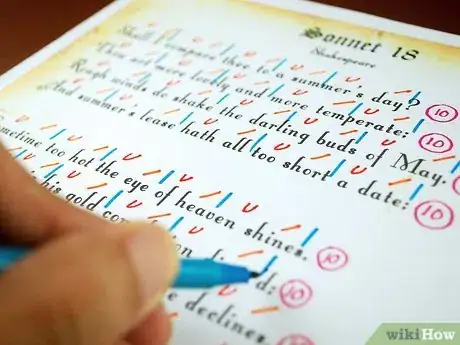 Sonnet 18
Shakespeare
Shall I compare thee to a summer's day? 10
Thou art more lovely and more temperate: 10
Rough winds do shake the darling buds of May.
And summer's lease hath all too short a date: 10
ometime too hot the eye of heaven shines. 10
his gold d: 10
declines.
wikiHow